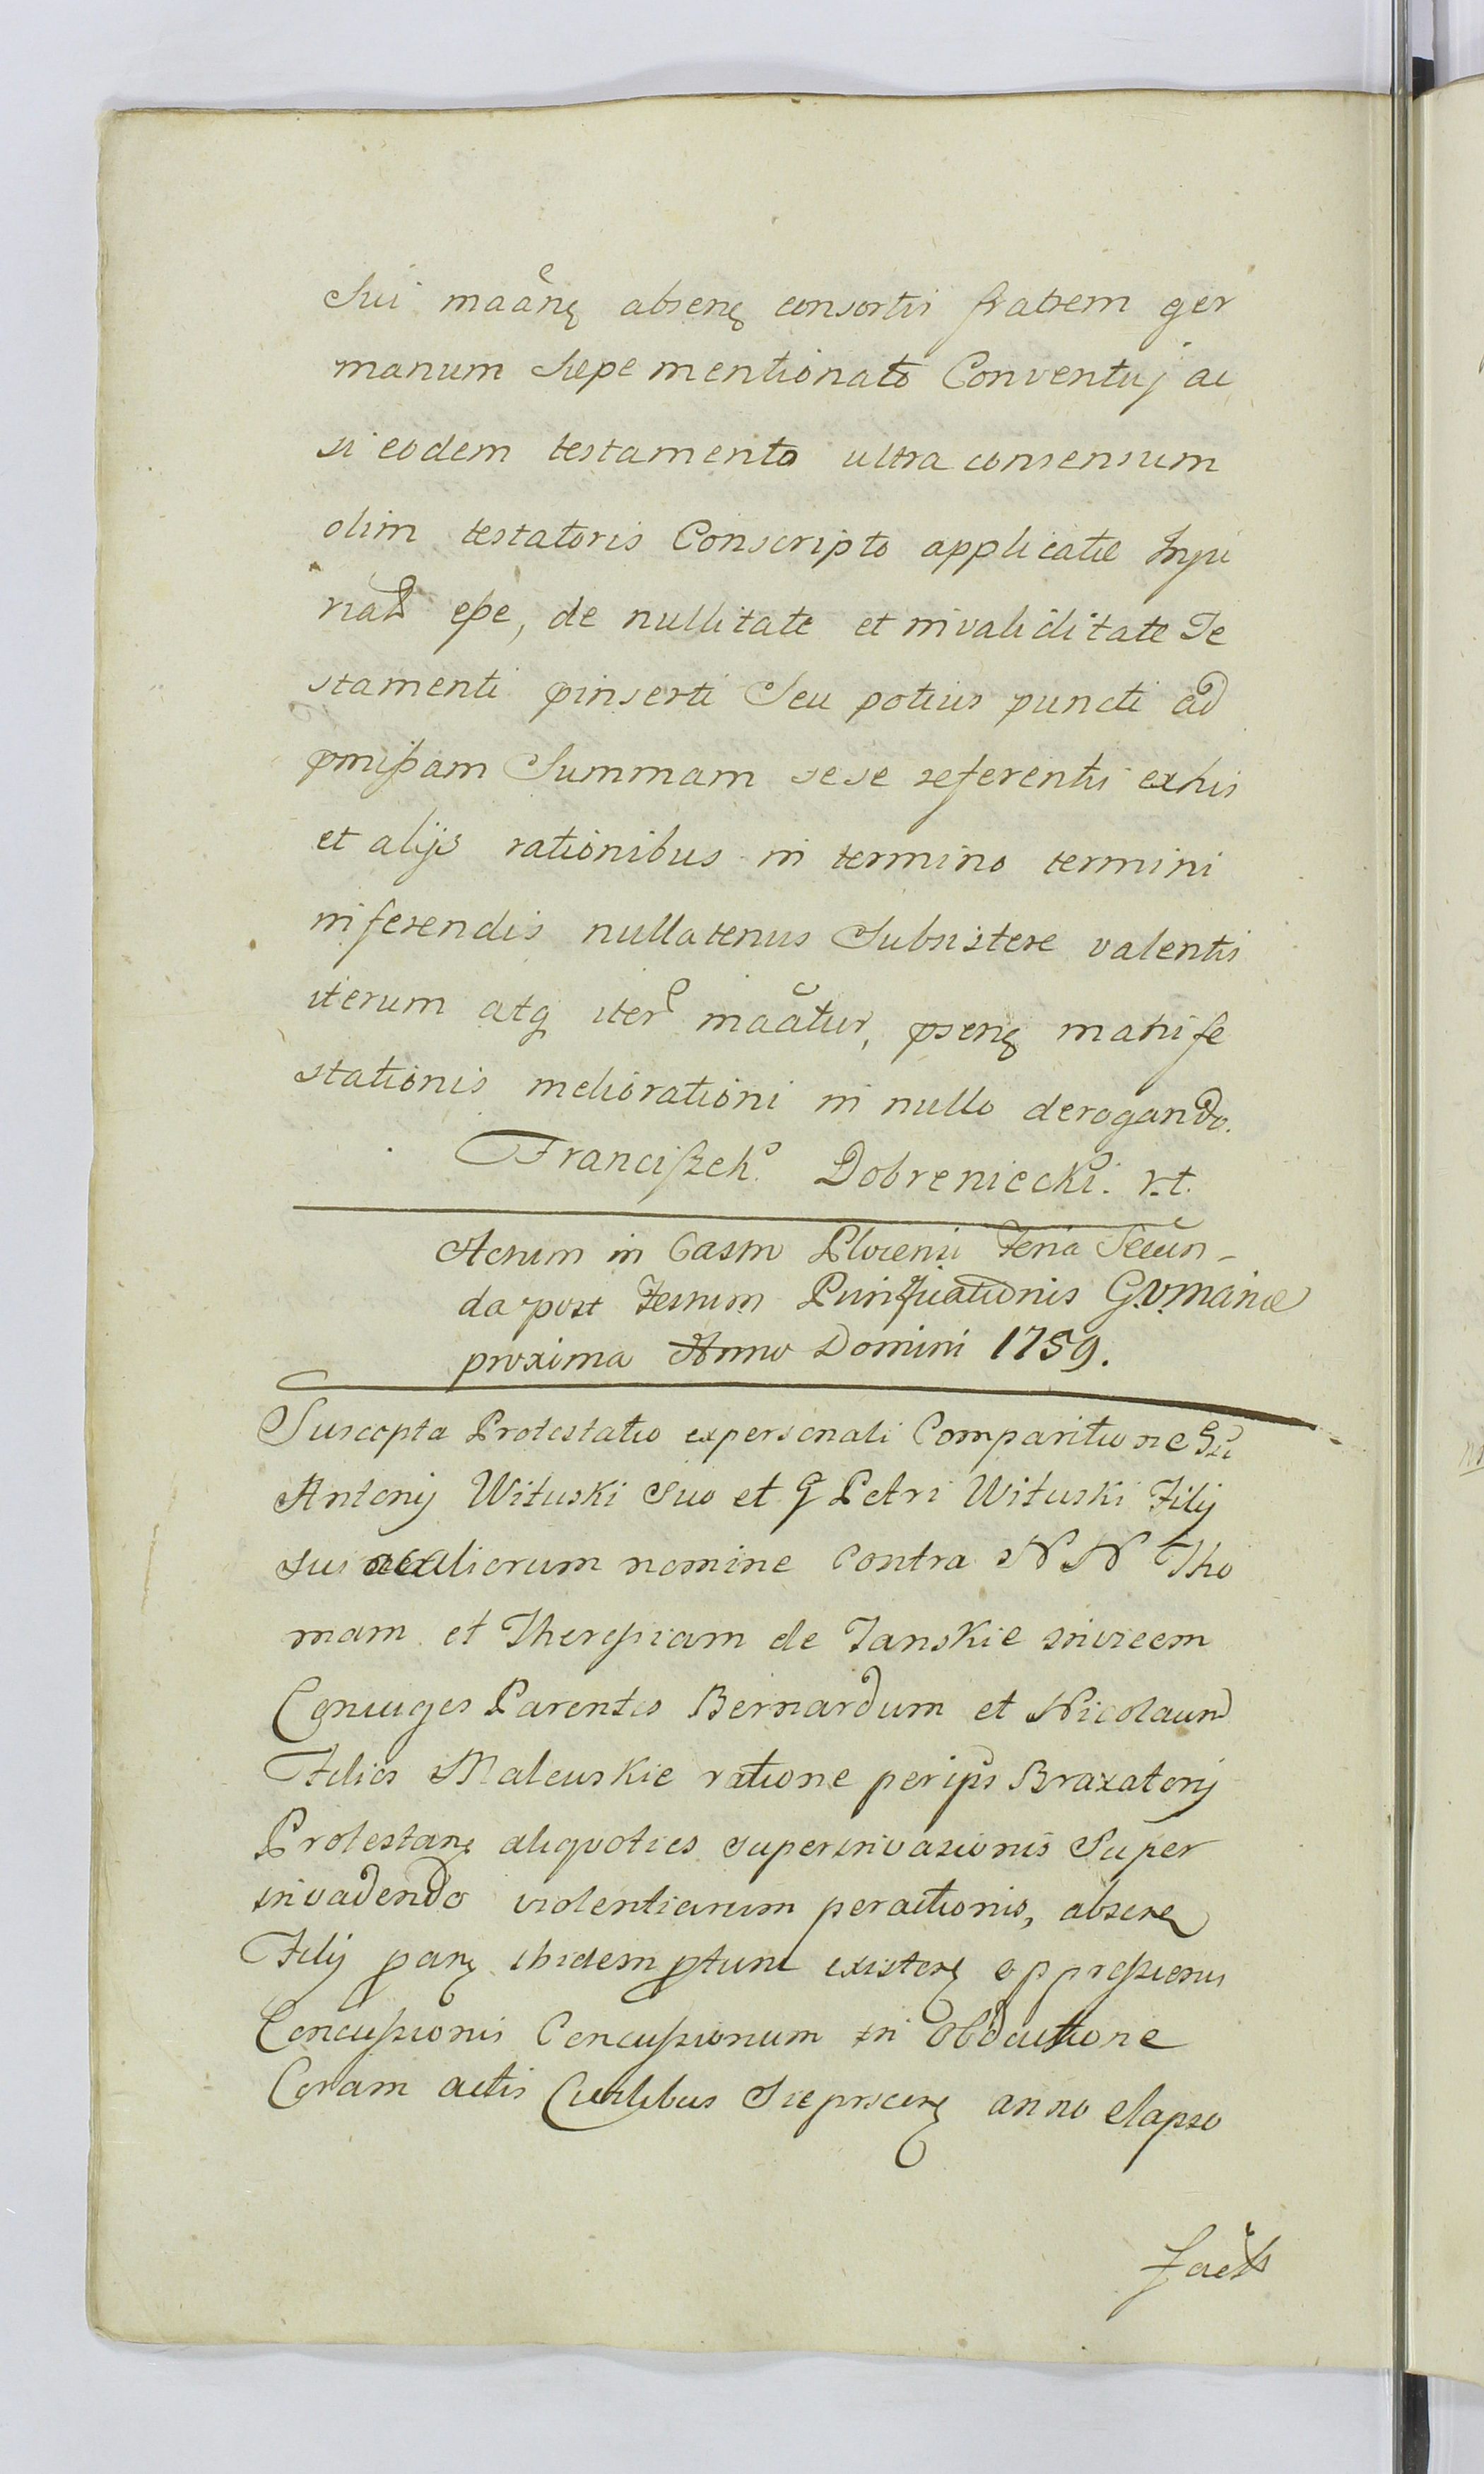 Sui maãnę absenę consortis fratrem ger
manum Sæpe mentionato Conventuj ac
si eodem testamento ultra consensum
olim testatoris Conscripto applicatæ
eße, de nullitate et invaliditate Te
stamenti pinserti Seu potius puncti ad
pmißam Summam sese referentis exhis
et alijs rationibus in termino termini
inferendis nullatenus Subsistere valentis
iterum atq iter maãtur, psenę manife
stationis meliorationi in nullo derogando.
Franciszek Dobreniecki. r.t.
Actum in Castro Plocensi Feria Secun-
da post Festum Purificationis G.V. Mariæ
proxima Anno Domini 1759.
Suscepta Protestatio expersonali Comparitione Gsi
Antonij Wituski Suo et G Petri Wituski Filij
sui acaliorum nomine Contra N N Tho
mam et Theresziam de Janskie invicem
Coniuges Parentes Bernardum et Nicolaum
Filios Maleuskie ratione per ips Braxatorij
Protestanę aliquoties superinvasionis Super
invadendo violentiarum peractionis, absenę
Filij parę ibidem ptunc existenę oppreszionis
Concuszionis Concuszionum in Obductione
Coram actis anno elapso